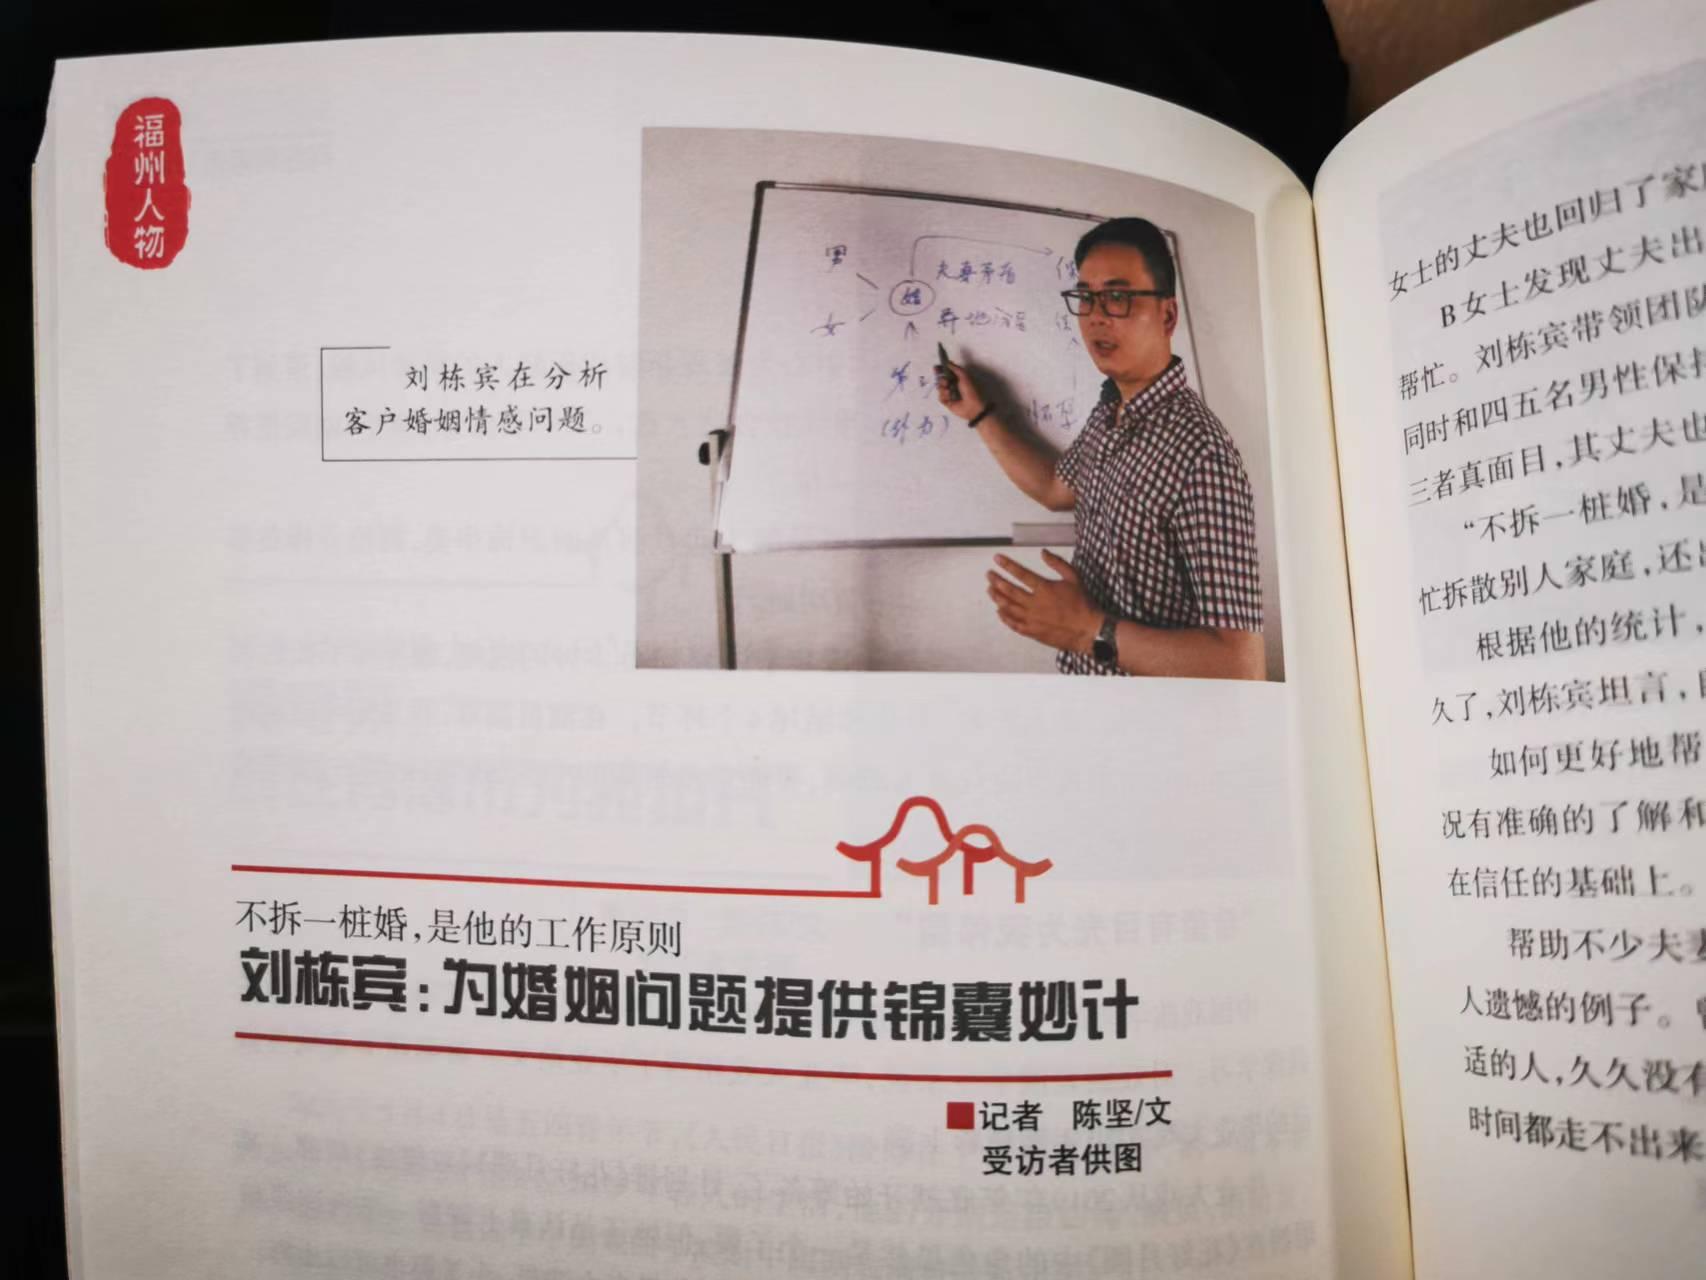 福州人物
男
婚
女
夫妻矛盾
异地分居
第三
(外力)
怀孕
刘栋宾在分析
客户婚姻情感问题。
不拆一桩婚,是他的工作原则
刘栋宾:为婚姻问题提供锦囊妙计
■记者 陈坚/文
受访者供图
女士的丈夫也回归了家
B女士发现丈夫出
帮忙。刘栋宾带领团队
同时和四五名男性保持
三者真面目,其丈夫也
“不拆一桩婚,是
忙拆散别人家庭,还
根据他的统计,
久了,刘栋宾坦言,
如何更好地帮
况有准确的了解和
在信任的基础上。
帮助不少夫妻
人遗憾的例子。曾
适的人,久久没有
时间都走不出来